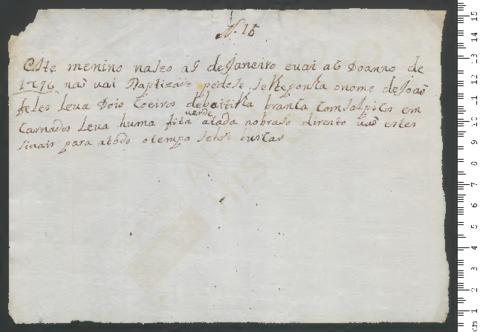 N. 15
Este menino naseo a 5 de Janeiro e vai a 6 do anno de
1796 nao vai Baptizado pedese se lhe ponha o nome de Joaõ
Leva Dois Coeiros de baitilha branca Com salpicos em
Carnados Leva huma fita verde atada no braso direito vaõ estes
sinais para a todo o tempo se lhe buscar